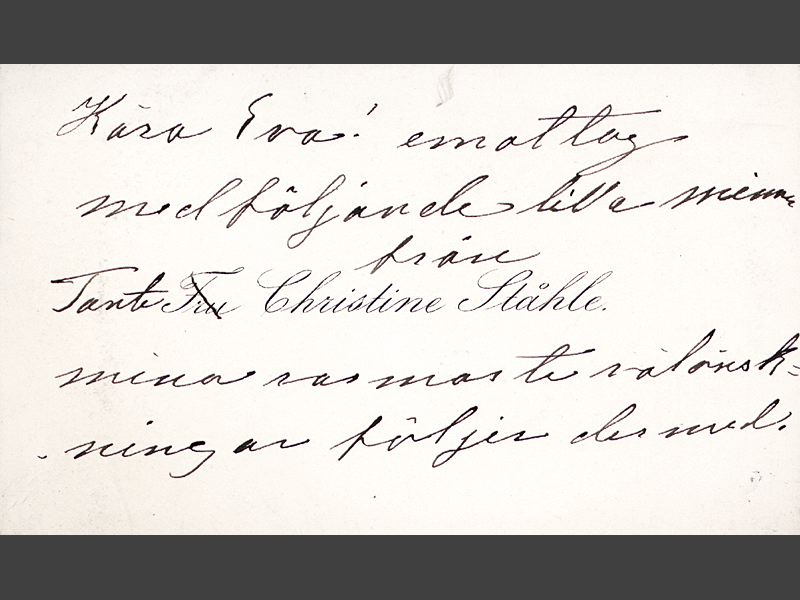 Kära Eva! emottag
medföljande lilla minne
från
Tant Fru Christine Ståhle.
mina varmaste välönsk=
ningar följer dermed.